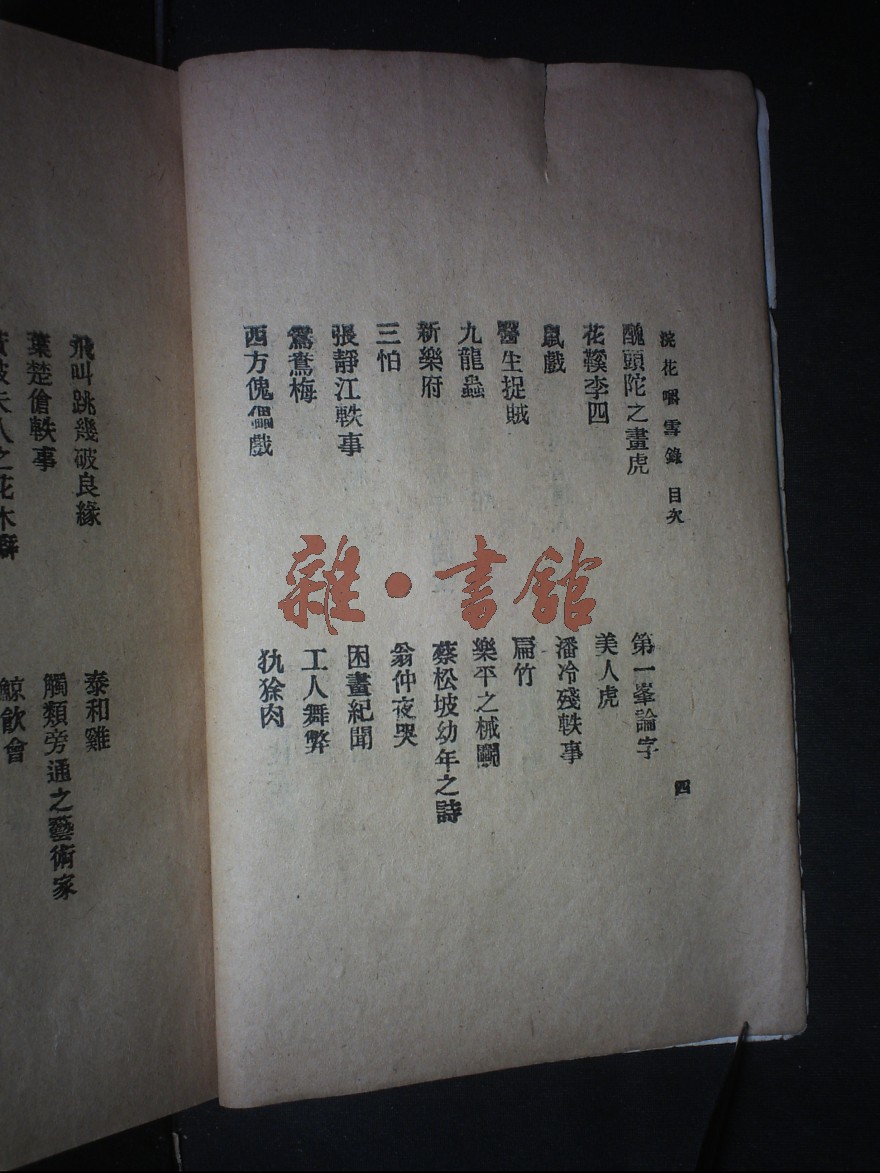 浣花嚼雪錄 目次
醜頭陀之畫虎
花鞵李四
鼠戲
醫生捉賊
九龍蟲
新樂府
三怕
張靜江軼事
鴛鴦梅
西方傀儡戲
第一峯論字
美人虎
潘冷殘軼事
扁竹
樂平之械鬭
蔡松坡幼年之詩
翁仲夜哭
困畫紀聞
工人舞弊
犰狳肉
四
飛叫跳幾破良緣
葉楚傖軼事
夫人之花木癖
泰和雞
觸類旁通之藝術家
鯨飲會
雜·書館